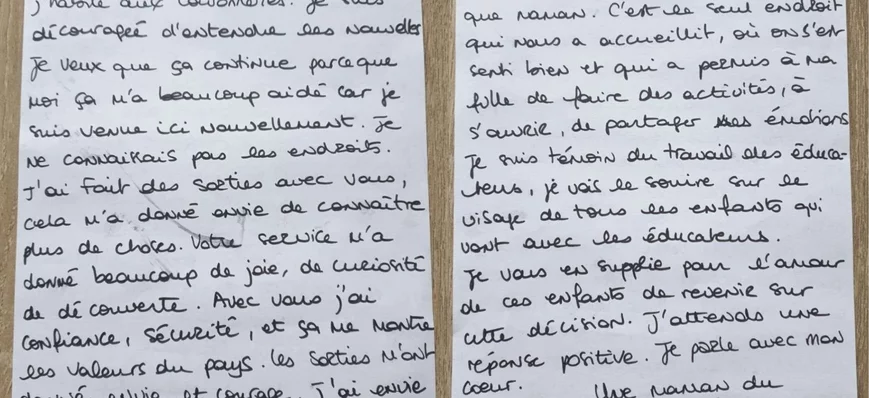 décourageé d'entendre les nouvelles
Je veux que ça continue parceque
moi ça m'a beaucoup aidé car je
suis venue ici nouvellement. Je
ne connaîkais pas les endroits.
J'ai fait des sorties avec vous,
cela m'a donné envie de connaître
plus de choses. Votre service m'a
donné beaucoup de joie, de curiosité
de découverte. Avec vous j'ai
confiance, sécurité, et ça me montre
les valeurs du pays. les sorties m'ont
et courage. J'ai envie
que maman. C'est le seul endroit
qui nous a accueillit, où on s'est
senti bien et qui a permis à ma
fille de faire des activités, à
s'ouvrir, de partager ses émotions
Je suis témoin du travail des éduca-
teurs, je vois le sourire sur le
visage de tous les enfants qui
vont avec les éducateurs.
Je vous en supplie pour l'amour
de ces enfants de revenir sur
cette décision. J'attends une
réponse positive. Je parle avec mon
coeur.
Une maman du